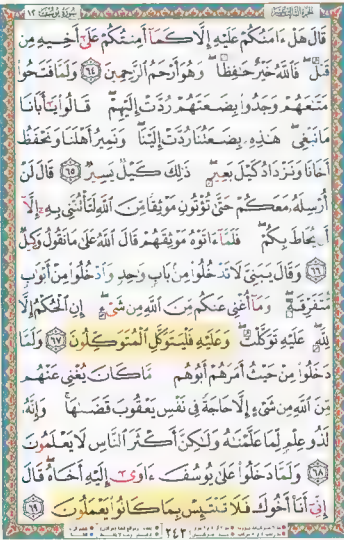 الجزء الثالث عشر سورة يوسف ١٢
قَالَ هَلْ ءَامَنُكُمْ عَلَيْهِ إِلَّا كَمَا أَمِنتُكُمْ عَلَىٰ أَخِيهِ مِن
قَبْلُ فَاللَّهُ خَيْرٌ حَافِظًا وَهُوَ أَرْحَمُ الرَّاحِمِينَ ٦٤ وَلَمَّا فَتَحُوا
مَتَاعَهُمْ وَجَدُوا بِضَاعَتَهُمْ رُدَّتْ إِلَيْهِمْ قَالُوا يَا أَبَانَا
مَا نَبْغِي هَٰذِهِ بِضَاعَتُنَا رُدَّتْ إِلَيْنَا وَنَمِيرُ أَهْلَنَا وَنَحْفَظُ
أَخَانَا وَنَزْدَادُ كَيْلَ بَعِيرٍ ذَٰلِكَ كَيْلٌ يَسِيرٌ ٦٥ قَالَ لَنْ
أُرْسِلَهُ مَعَكُمْ حَتَّىٰ تُؤْتُونِ مَوْثِقًا مِّنَ اللَّهِ لَتَأْتُنَّنِي بِهِ إِلَّا
أَن يُحَاطَ بِكُمْ فَلَمَّا ءَاتَوْهُ مَوْثِقَهُمْ قَالَ اللَّهُ عَلَىٰ مَا نَقُولُ وَكِيلٌ
٦٦ وَقَالَ يَا بَنِيَّ لَا تَدْخُلُوا مِن بَابٍ وَاحِدٍ وَادْخُلُوا مِنْ أَبْوَابٍ
مُّتَفَرِّقَةٍ وَمَا أُغْنِي عَنكُم مِّنَ اللَّهِ مِن شَيْءٍ إِنِ الْحُكْمُ إِلَّا
لِلَّهِ عَلَيْهِ تَوَكَّلْتُ وَعَلَيْهِ فَلْيَتَوَكَّلِ الْمُتَوَكِّلُونَ ٦٧ وَلَمَّا
دَخَلُوا مِنْ حَيْثُ أَمَرَهُمْ أَبُوهُم مَّا كَانَ يُغْنِي عَنْهُم
مِّنَ اللَّهِ مِن شَيْءٍ إِلَّا حَاجَةً فِي نَفْسِ يَعْقُوبَ قَضَاهَا وَإِنَّهُ
لَذُو عِلْمٍ لِّمَا عَلَّمْنَاهُ وَلَٰكِنَّ أَكْثَرَ النَّاسِ لَا يَعْلَمُونَ
٦٨ وَلَمَّا دَخَلُوا عَلَىٰ يُوسُفَ ءَاوَىٰ إِلَيْهِ أَخَاهُ قَالَ
إِنِّي أَنَا أَخُوكَ فَلَا تَبْتَئِسْ بِمَا كَانُوا يَعْمَلُونَ ٦٩
٢٤٣